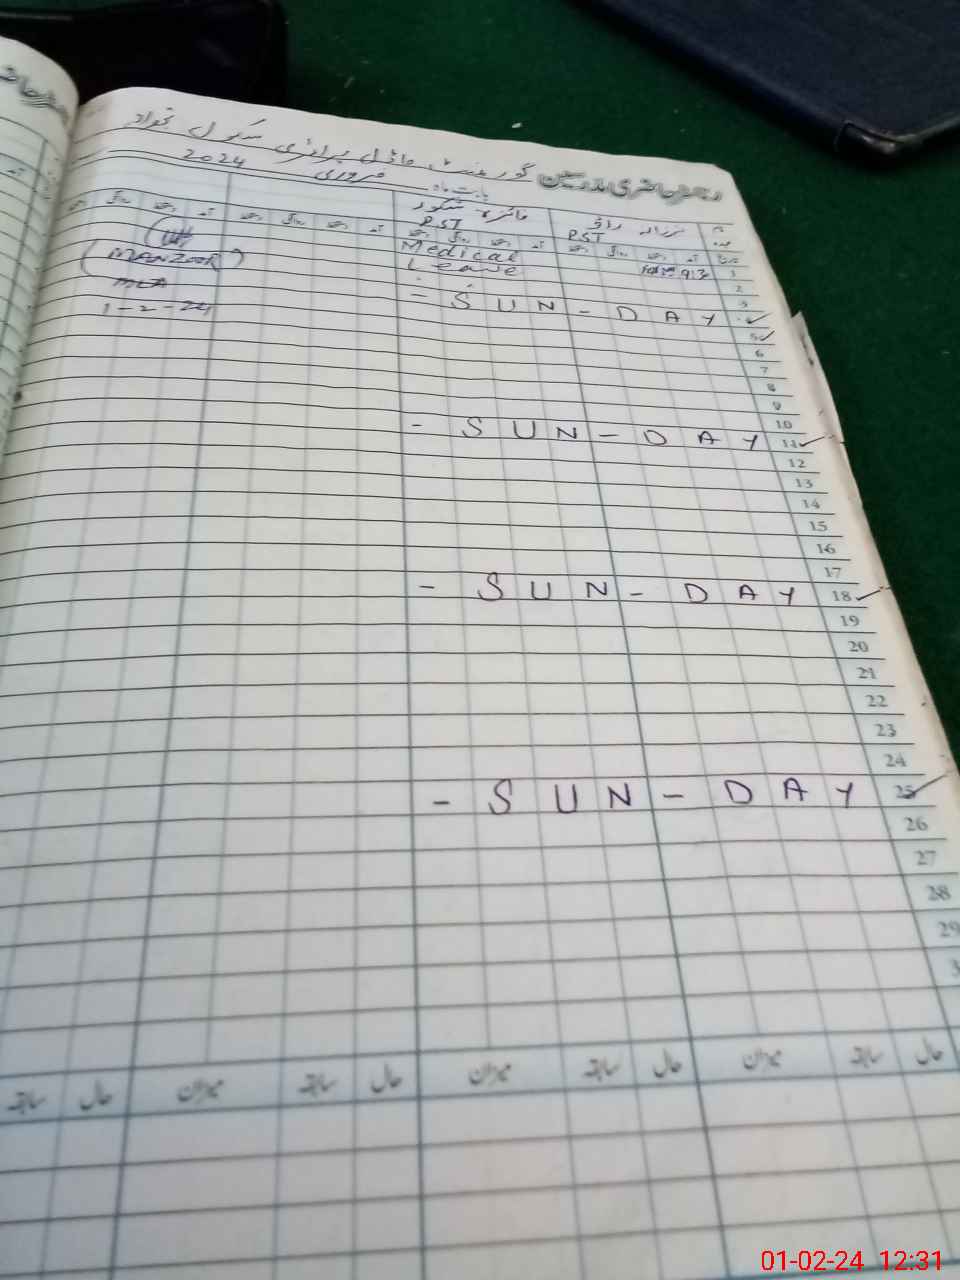 رجسٹر حاضری مدرسین گورنمنٹ ماڈل پرائمری سکول
بابت ماہ فروری 2024
فائزہ شکور
PST PST
آمد
Medical
Leave
1
2
3
- SUN - DAY 4
5
6
7
8
9
10
- SUN - DAY 11
12
13
14
15
16
17
- SUN - DAY 18
19
20
21
22
23
24
- SUN - DAY 25
26
27
28
29
3
(MANZOOR)
1-2-24
حال سابقہ میزان حال سابقہ میزان حال سابقہ میزان حال سابقہ
01-02-24 12:31